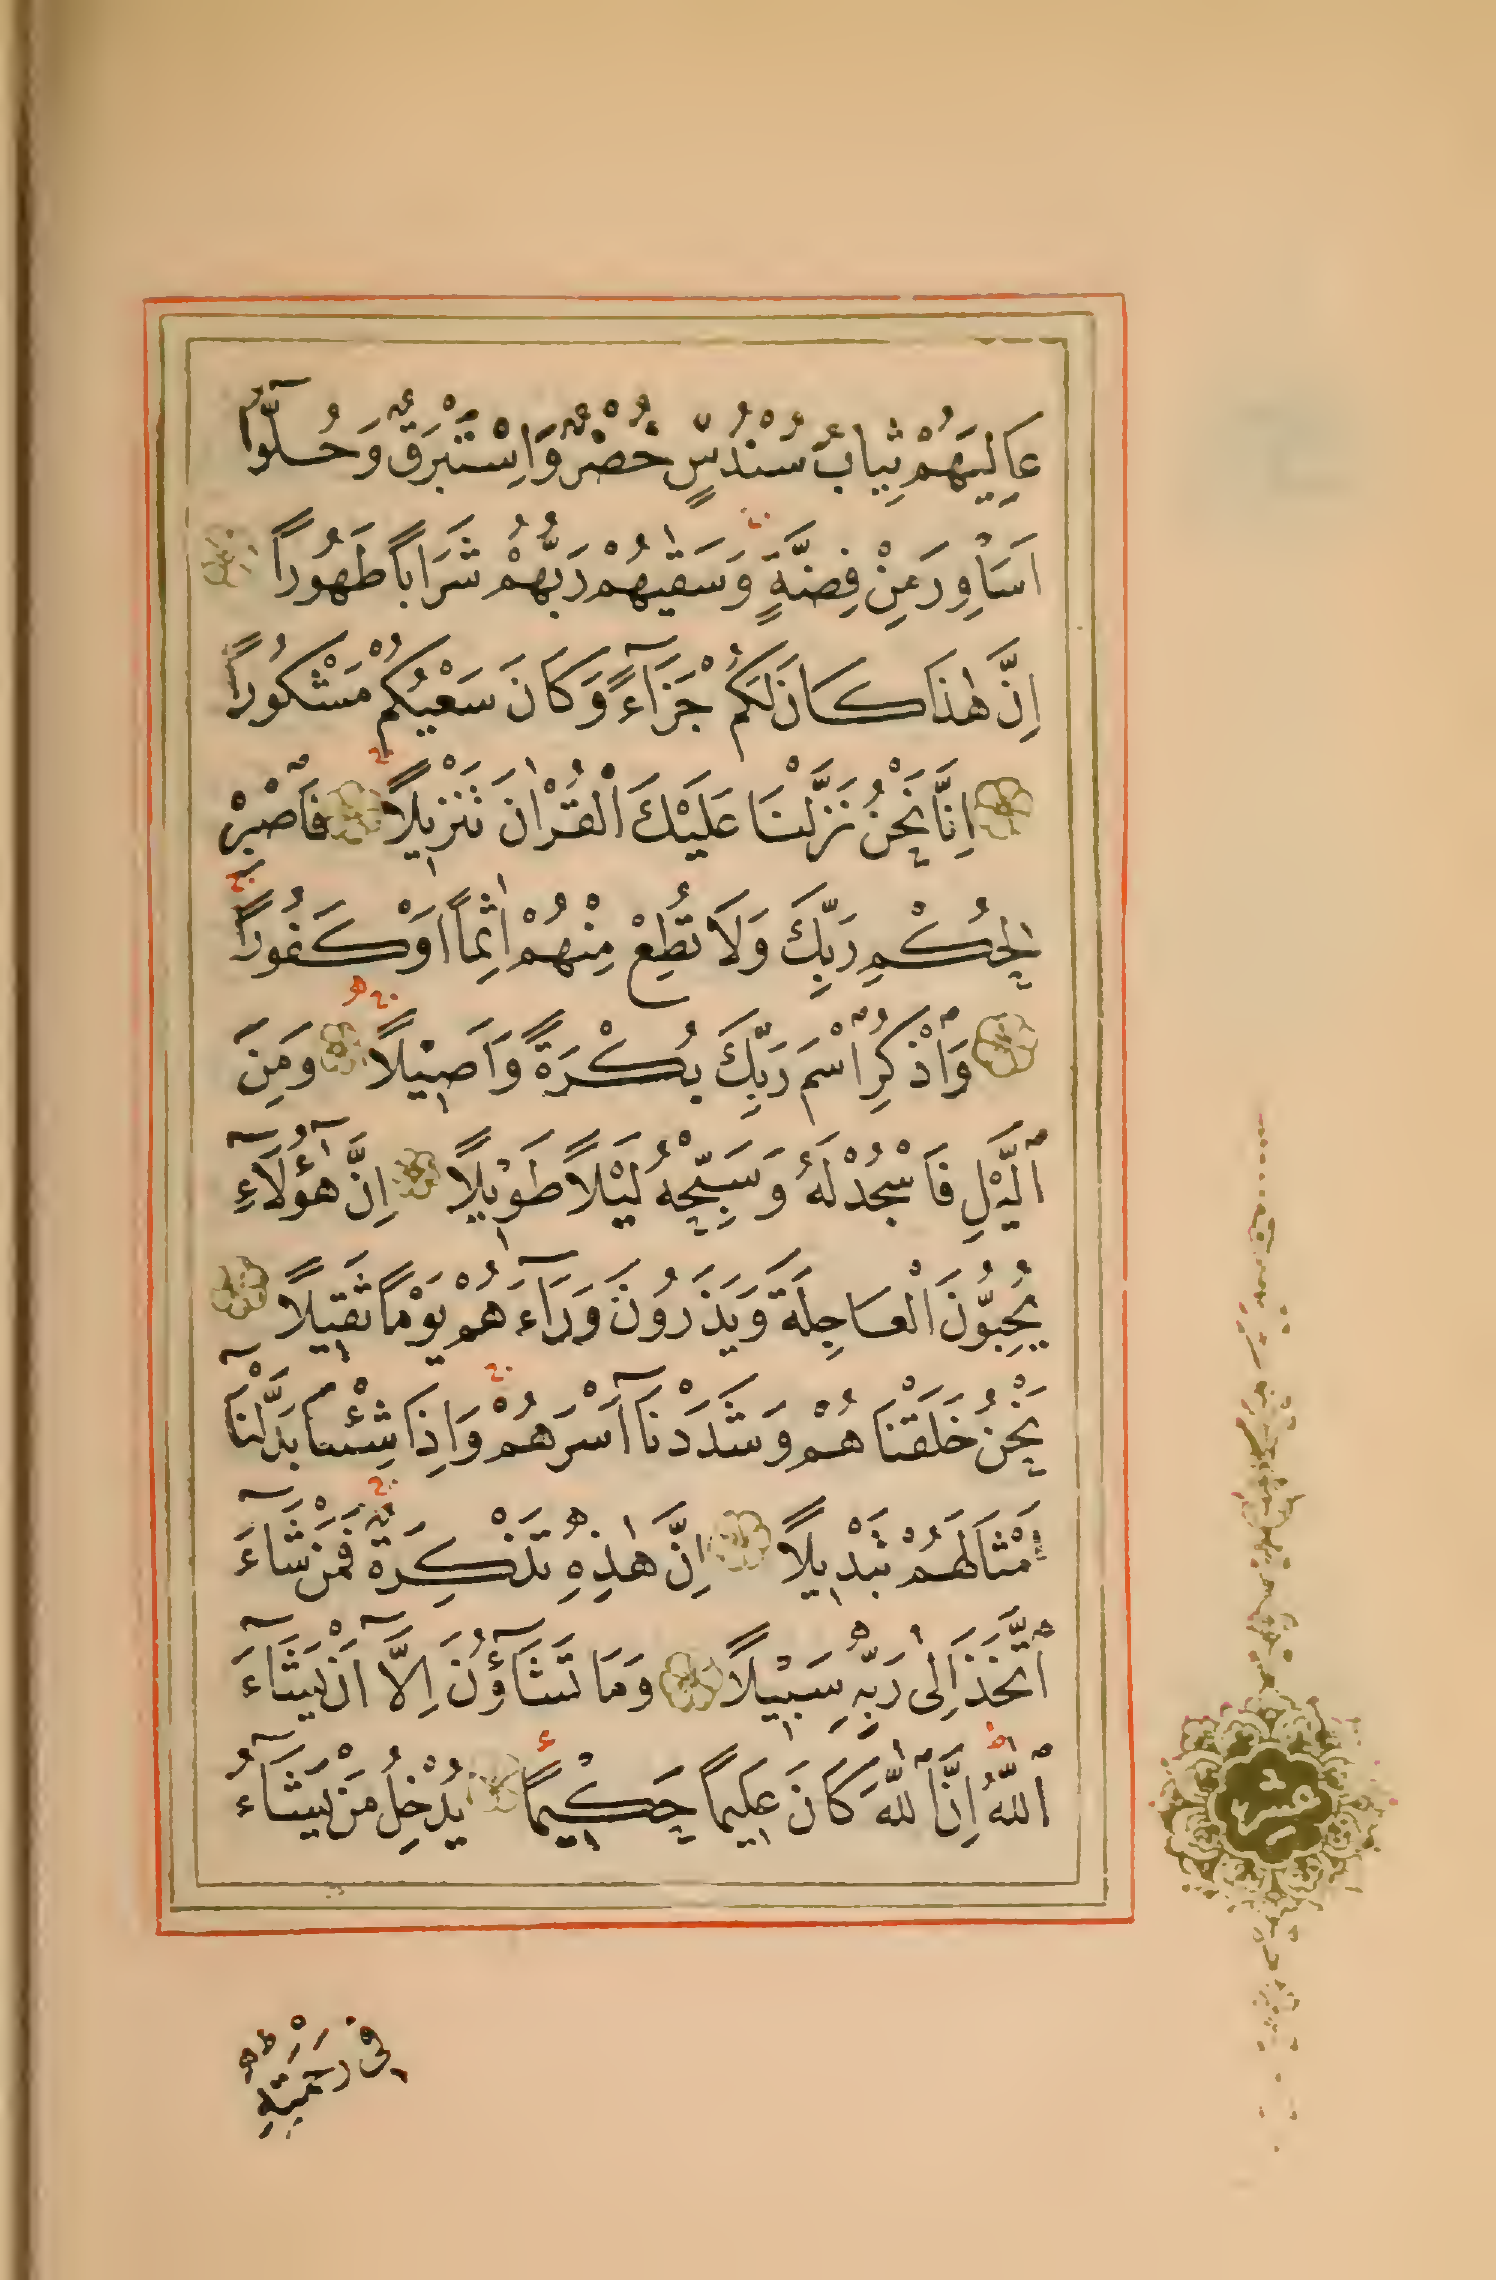 عَالِيَهُمْ ثِيَابُ سُنْدُسٍ خُضْرٌ وَاِسْتَبْرَقٌ وَحُلُّٓوا
اَسَاوِرَ مِنْ فِضَّةٍ وَسَقٰيهُمْ رَبُّهُمْ شَرَابًا طَهُورًا
اِنَّ هٰذَا كَانَ لَكُمْ جَزَٓاءً وَكَانَ سَعْيُكُمْ مَشْكُورًا
اِنَّا نَحْنُ نَزَّلْنَا عَلَيْكَ الْقُرْاٰنَ تَنْزِيلًا فَاصْبِرْ
لِحُكْمِ رَبِّكَ وَلَا تُطِعْ مِنْهُمْ اٰثِمًا اَوْ كَفُورًا
وَاذْكُرِ اسْمَ رَبِّكَ بُكْرَةً وَاَصِيلًا وَمِنَ
الَّيْلِ فَاسْجُدْ لَهُ وَسَبِّحْهُ لَيْلًا طَوِيلًا اِنَّ هٰٓؤُلَٓاءِ
يُحِبُّونَ الْعَاجِلَةَ وَيَذَرُونَ وَرَٓاءَهُمْ يَوْمًا ثَقِيلًا
نَحْنُ خَلَقْنَاهُمْ وَشَدَدْنَٓا اَسْرَهُمْ وَاِذَا شِئْنَا بَدَّلْنَٓا
اَمْثَالَهُمْ تَبْدِيلًا اِنَّ هٰذِهِ تَذْكِرَةٌ فَمَنْ شَٓاءَ
اتَّخَذَ اِلٰى رَبِّهِ سَبِيلًا وَمَا تَشَٓاؤُنَ اِلَّٓا اَنْ يَشَٓاءَ
اللّٰهُ اِنَّ اللّٰهَ كَانَ عَلِيمًا حَكِيمًا يُدْخِلُ مَنْ يَشَٓاءُ
فِى رَحْمَتِهِ